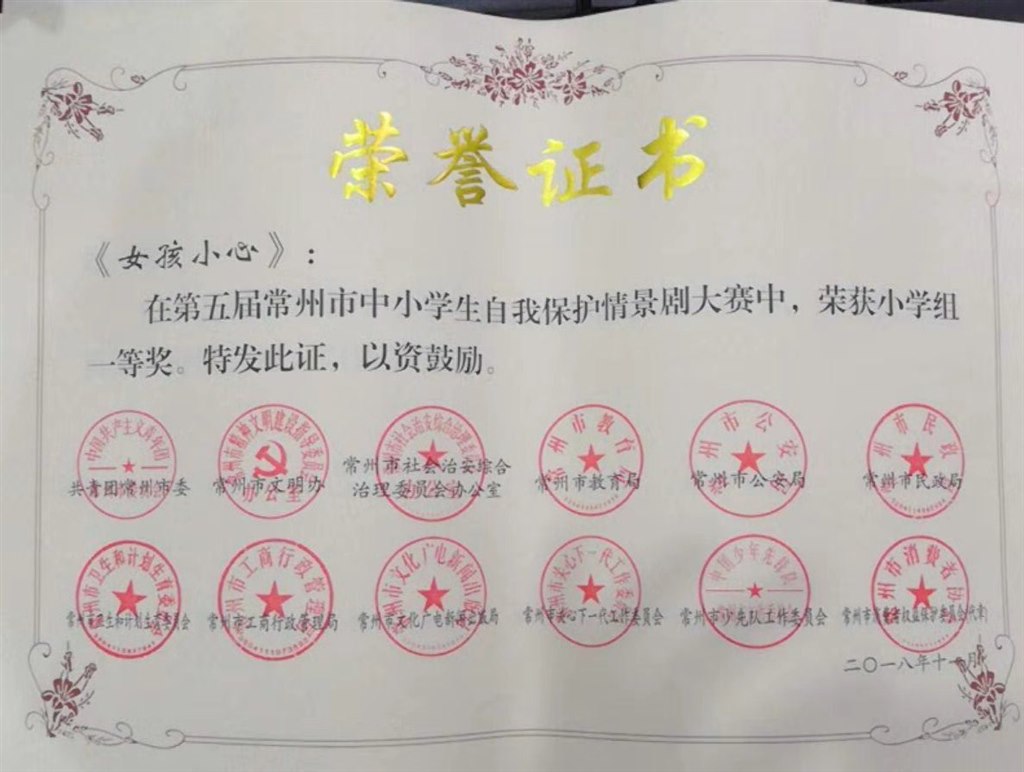 荣誉证书
《女孩小心》：
在第五届常州市中小学生自我保护情景剧大赛中，荣获小学组
一等奖。特发此证，以资鼓励。
共青团常州市委
常州市文明办
常州市社会治安综合
治理委员会办公室
常州市教育局
常州市公安局
常州市民政局
常州市卫生和计划生育委员会
常州市工商行政管理局
常州市文化广电新闻出版局
常州市关心下一代工作委员会
常州市少先队工作委员会
二〇一八年十一月